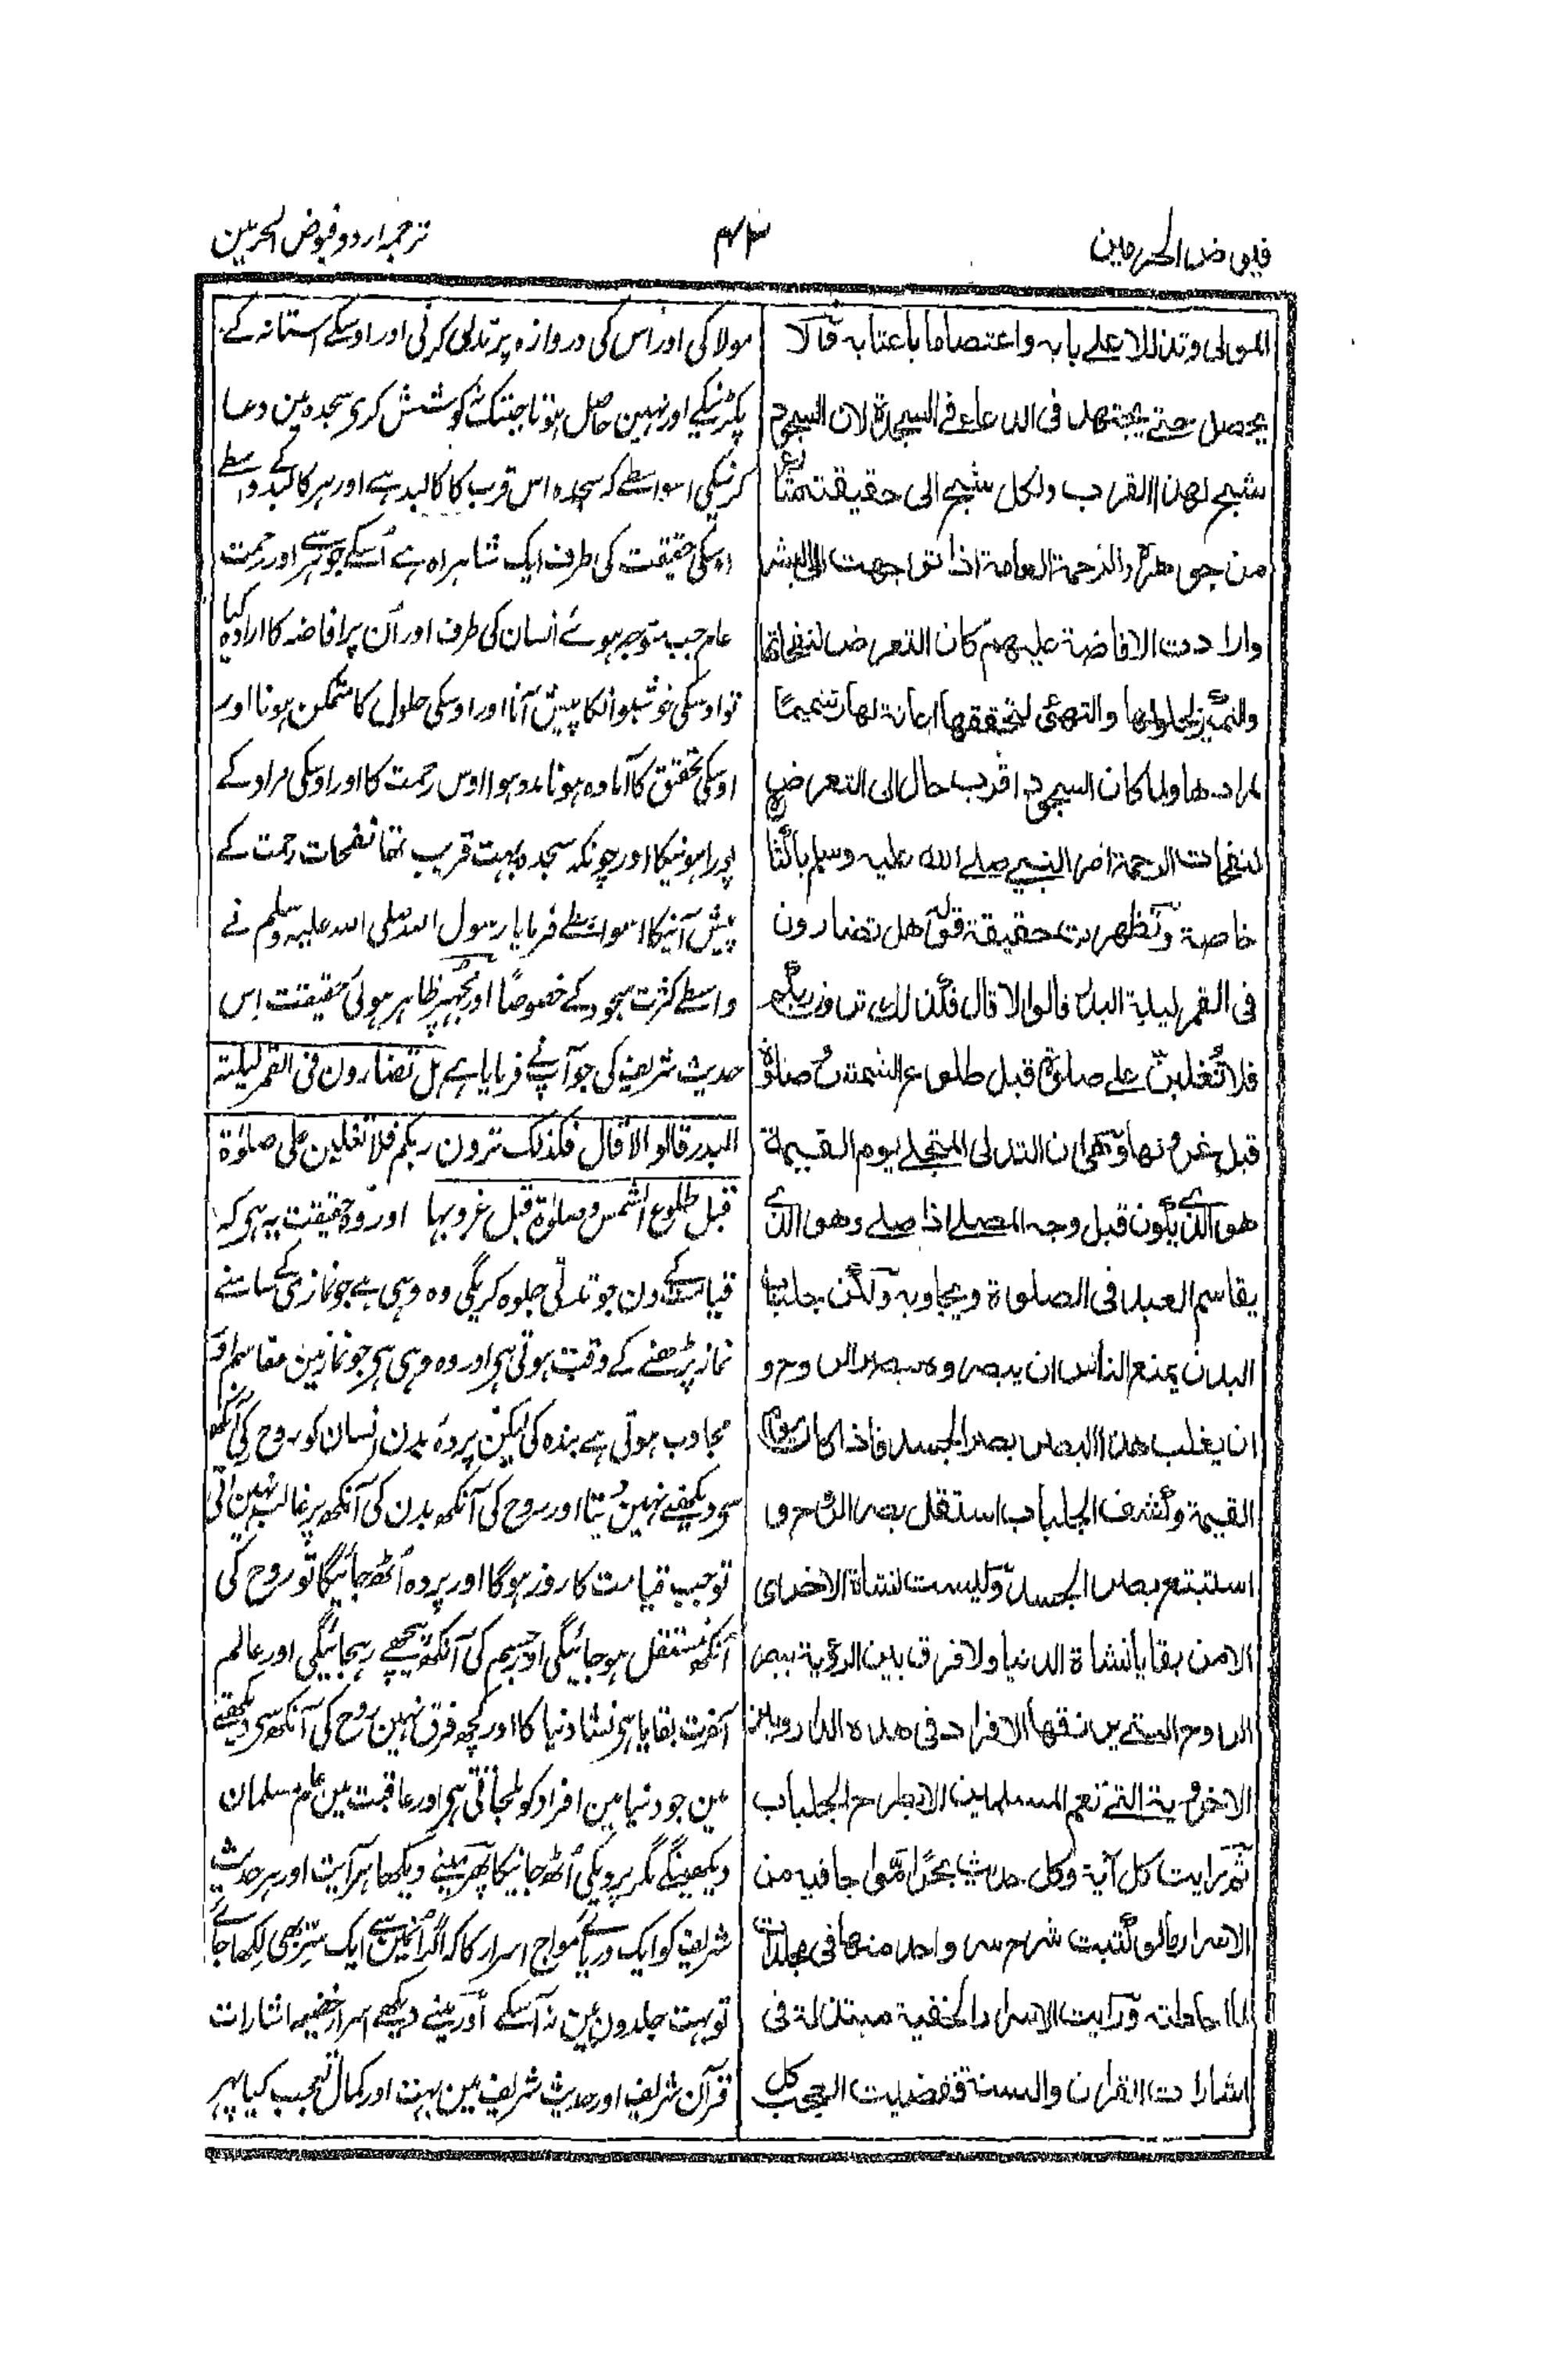 فیوض الحرمین
۴۳
ترجمہ اردو فیوض الحرمین
المولی وتذللا علے بابہ واعتصاما باعتابہ ولا
یحصل حتے یجتهد فی الدعاء فے السجدۃ لان السجود
شبح لهذا القرب ولکل شبح الی حقیقتہ
من جوهره والرحمة العامة اذا تواجهت الی البشر
وارادت الافاضة علیهم کان التعرض لنفحاتها
لحلولها والتهئی لتحققها اعانة لها وتتمیمًا
لمرادها ولما کان السجود اقرب حال الی التعرض
لنفحات الرحمة امر النبے صلے الله علیه وسلم
خاصة وظهرت حقیقة قوله هل تضارون
فی القمر لیلة البدر قالوا لا قال فکذلك ترون ربکم
فلا تغلبن علے صلوة قبل طلوع الشمس وصلوة
قبل غروبها وهی ان التدلی المتجلے یوم القیمة
هو الذے یکون قبل وجه المصلے اذا صلے وهو الذے
یقاسم العبد فی الصلوة ویجاوبه ولکن جلباب
البدن یمنع الناس ان یبصروہ ببصر الروح و
ان یغلب هذا البصر بصر الجسد فاذا کان یوم
القیمة وکشف الجلباب استقل بصر الروح و
استتبع بصر الجسد ولیست نشاة الاخری
الا من بقایا نشاة الدنیا ولا فرق بین الرؤیة ببصر
الروح التے یرزقها الافراد فی هذه الدار وبین
الاخرویة التے تعم المسلمین الا بطرح الجلباب
ثم رایت کل آیة وکل حدیث بحرًا موّاجا فیه من
الاسرار ما لو کتبت شرح سر واحد منها فی مجلدات
لما احاطته ورایت الاسرار الخفیة مبتذلة فی
اشارات القران والسنة فقضیت العجب کل
مولا کی اور اس کی دروازہ پر تذلل کرنی اور اوسکے استانہ کے
پکڑنیکے اور نہین حاصل ہوتا جبتک کوشش کری سجدہ مین دعا
کرنیکی اسواسطے کہ سجدہ اس قرب کا کالبد ہے اور ہر کالبد کے واسطے
اوسکی حقیقت کی طرف ایک شاہراہ ہے اُسکے جوہر سے اور رحمت
عام جب متوجہ ہوئے انسان کی طرف اور اُن پر افاضہ کا ارادہ کیا
تو اوسکی خوشبو انکا پیش آنا اور اوسکی حلول کا متمکن ہونا اور
اوسکی تحقق کا آمادہ ہونا مدد ہوا اوس رحمت کا اور اوسکی مراد کے
پورا ہونیکا اور چونکہ سجدہ بہت قریب تھا نفحات رحمت کے
پیش آنیکا اسواسطے فرمایا رسول اللہ صلی اللہ علیہ وسلم نے
واسطے کثرت سجود کے خصوصًا اور مجھپر ظاہر ہوئی حقیقت اِس
حدیث شریف کی جو آپنے فرمایا ہے ہل تضارون فی القمر لیلۃ
البدر قالوا لا قال فکذلک ترون ربکم فلا تغلبن علی صلوٰۃ
قبل طلوع الشمس وصلوٰۃ قبل غروبہا اور وہ حقیقت یہ ہی کہ
قیامت کے دن جو تدلّی جلوہ کریگی وہ وہی ہے جو نمازی کے سامنے
نماز پڑھنے کے وقت ہوتی ہی اور وہ وہی ہی جو نماز مین مقاسم اور
مجاوب ہوتی ہے بندہ کی لیکن پردۂ بدن انسان کو روح کی آنکھ
سی دیکھنے نہین دیتا اور روح کی آنکھ بدن کی آنکھ پر غالب نہین آتی
تو جب قیامت کا روز ہوگا اور پردہ اُٹھ جائیگا تو روح کی
آنکھ مستقل ہو جائیگی اور جسم کی آنکھ پیچھے رہجائیگی اور عالم
آخرت بقایا ہی نشاۃ دنیا کا اور کچھ فرق نہین روح کی آنکھ سی دیکھنے
مین جو دنیا مین افراد کو ملجاتی ہی اور عاقبت مین عام مسلمان
دیکھینگے مگر پردیکی اُٹھ جانیکا پھر مینے دیکھا ہر آیت اور ہر حدیث
شریف کو ایک دریائے موّاج اسرار کا کہ اگر اُنمین سے ایک سِرّ بھی لکھا جائے
تو بہت جلدون مین نہ آسکے اور مینے دیکھے اسرار خفیہ اشارات
قرآن شریف اور حدیث شریف مین بہت اور کمال تعجب کیا پہر